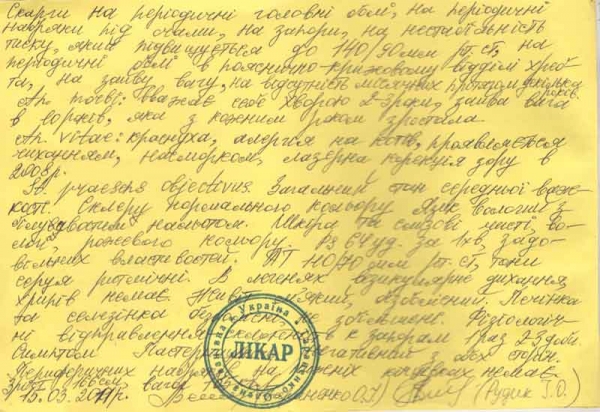 Скарги на періодичні головні болі, на періодичні
набряки під очима, на запори, на нестабільність
тиску, який підвищується до 140/90мм рт.ст, на
періодичні болі в пояснично-крижовому відділі хреб-
та, на зайву вагу, на відсутність місячних протягом декількох
років.
An. morbi: Вважає себе хворою 2 роки, зайва вага
в юржів, яка з кожним роком зростала.
An. vitae: краснуха, алергія на котів, проявляється
чиханням, насморком, лазерна корекція зору в
2008р.
St. praesens objectivus. Загальний стан середньої важ-
кості. Склери нормального кольору. Язик вологий з
білуватим нальотом. Шкіра та слизові чисті, во-
логі, рожевого кольору. Ps 64 уд. за 1хв, задо-
вільних властивостей. АТ 110/70 мм рт.ст, тони
серця ритмічні. В легенях везикулярне дихання,
хрипів немає. Живіт м'який, безболісний. Печінка
та селезінка не збільшені. Фізіологіч-
ні відправлення: схильність к запорам 1 раз 2-3 доби.
Симптом Пастернацького негативний з обох сторон.
Периферичних набряків на нижніх кінцівках немає.
Зріст 168см вага
15.03.2011р. (Рудик Т.О.)
Україна
ЛІКАР